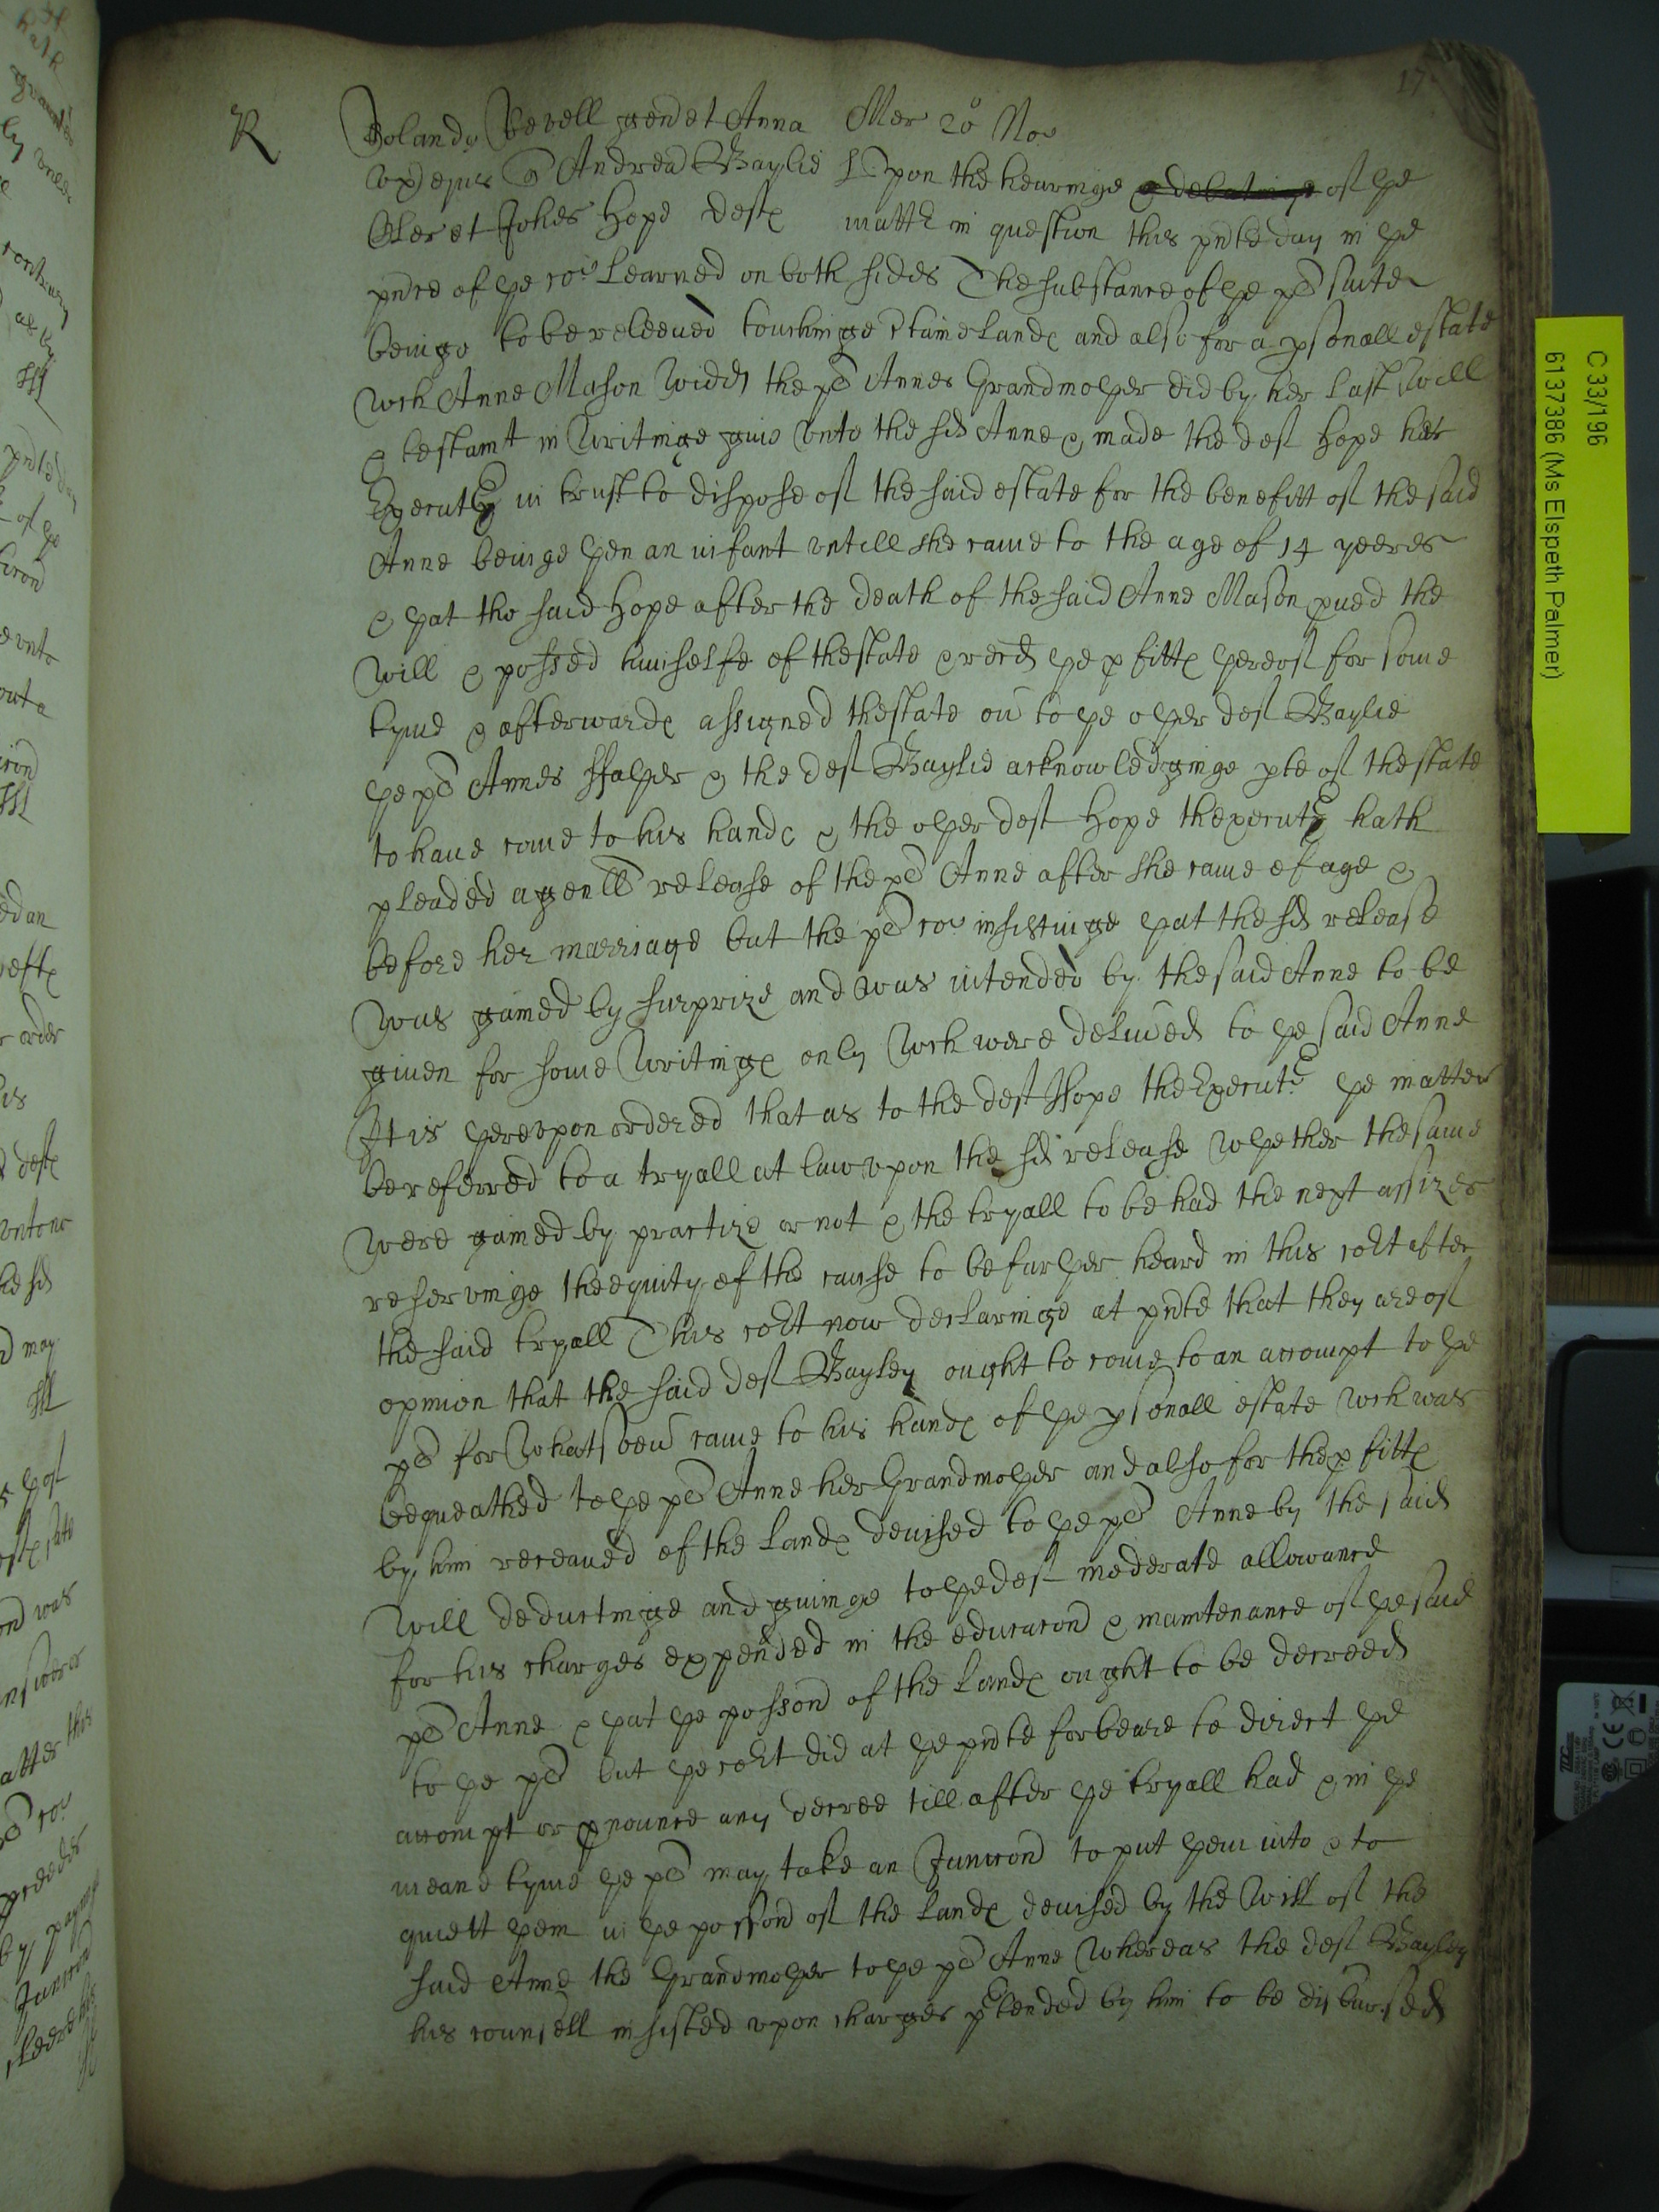 17
R
Rolandus Bevell gen et Anna Mer 20 Nov
vx eius q Andrea Baylie Vpon the hearinge & debatinge of ye
Cler et Johes Hope deft matter in question this pnte day in ye
pnce of ye co: Learned on both sides The substance of ye pl suite
beinge to be releeued touchinge ctaine Landes and also for a psonall estate
wch Anne Mason widd the pl Annes Grandmoyer did by her last will
& testamt in writinge giue vnto the sd Anne & made the deft Hope her
Executor in trust to dispose of the said estate for the benefitt of the said
Anne beinge yen an infant vntill she came to the age of 14 yeeres
& yat the said Hope after the death of the said Anne Mason pued the
will & possed himselfe of thestate & recd ye pfitts yereof for some
tyme & afterwardes assigned thestate ou to ye oyer deft Baylie
ye pl Annes ffayer & the deft Baylie acknowledginge pte of thestate
to haue come to his handes & the oyer deft Hope thexecutor hath
pleaded a genll release of the pl Anne after she came of age &
before her marriage but the pl co: insistinge yat the sd release
was gained by surprize and was intended by the said Anne to be
giuen for some writinges only wch were deliued to ye said Anne
It is yerevpon ordered that as to the deft Hope the Executr ye matter
be referred to a tryall at law vpon the sd release whether the same
were gained by practize or not & the tryall to be had the next assizes
reservinge the equity of the cause to be furyer heard in this cort after
the said tryall This cort now declaringe at pnte that they are of
opinion that the said deft Bayley ought to come to an accompt to ye
pl for whatsoeu came to his handes of ye psonall estate wch was
bequeathed to ye pl Anne her Grandmoyer and also for the pfitts
by him receaued of the Landes deuised to ye pl Anne by the said
will deductinge and giuinge to ye deft moderate allowance
for his charges expended in the educacon & maintenance of ye said
pl Anne & yat ye posson of the Landes ought to be decreed
to ye pl but ye cort did at ye pnte forbeare to direct ye
accompt or pnounce any decree till after ye tryall had & in ye
meane tyme ye pl may take an Junccon to put yem into & to
quiett yem in ye posson of the Landes deuised by the will of the
said Anne the Grandmoyer to ye pl Anne whereas the deft Bayley
his counsell insisted vpon charges ptended by him to be disbursed
C 33/196
6137386 (Ms Elspeth Palmer)